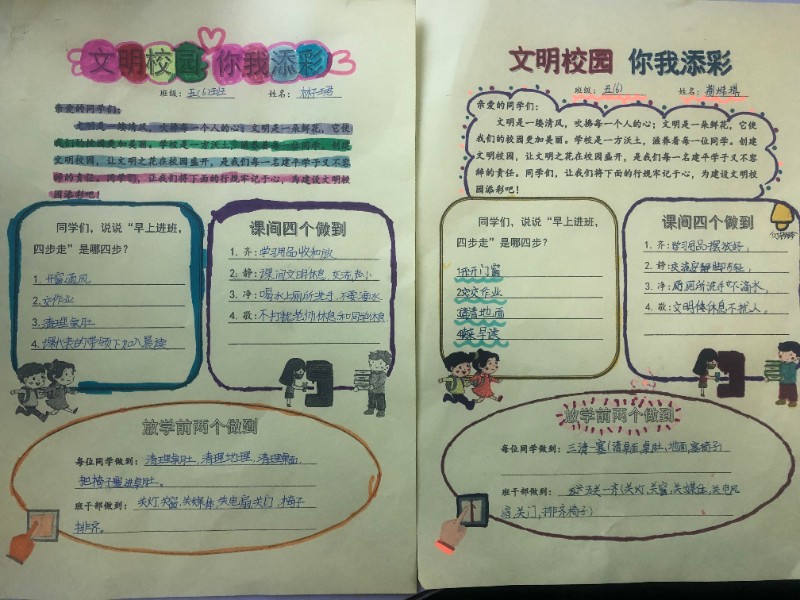 文明校园 你我添彩
班级：五(6)班 姓名：
亲爱的同学们：
文明是一缕清风，吹拂每一个人的心；文明是一朵鲜花，它使
我们的校园更加美丽。学校是一方沃土，滋养着每一位同学。创建
文明校园，让文明之花在校园盛开，是我们每一名建平学子义不容
辞的责任。同学们，让我们将下面的行规牢记于心，为建设文明校
园添彩吧！
同学们，说说“早上进班，
四步走”是哪四步？
1. 开窗通风
2. 交作业
3. 清理桌肚
4. 课代表的带领下加入晨读
课间四个做到
1. 齐：学习用品收和放
2. 静：课间文明休息，交流声小
3. 净：喝水上厕所洗手，不要洒水
4. 敬：不打扰老师休息和同学休息
放学前两个做到
每位同学做到：清理桌肚，清理地理，清理桌面，
把椅子塞进桌肚。
班干部做到：关灯，关窗，关媒体，关电扇，关门，椅子
排齐。
文明校园 你我添彩
班级：五(6) 姓名：
亲爱的同学们：
文明是一缕清风，吹拂每一个人的心；文明是一朵鲜花，它使
我们的校园更加美丽。学校是一方沃土，滋养着每一位同学。创建
文明校园，让文明之花在校园盛开，是我们每一名建平学子义不容
辞的责任。同学们，让我们将下面的行规牢记于心，为建设文明校
园添彩吧！
同学们，说说“早上进班，
四步走”是哪四步？
1. 开门窗
2. 交作业
3. 清地面
4. 早读
课间四个做到
1. 齐：学习用品摆放好，
2. 静：
3. 净：厕所洗手不洒水，
4. 敬：文明休息不扰人。
放学前两个做到
每位同学做到：三清一塞(清桌面，桌肚，地面，塞椅子
班干部做到：关一齐(关灯，关窗，关媒体，关电风
扇，关门，排齐椅子)